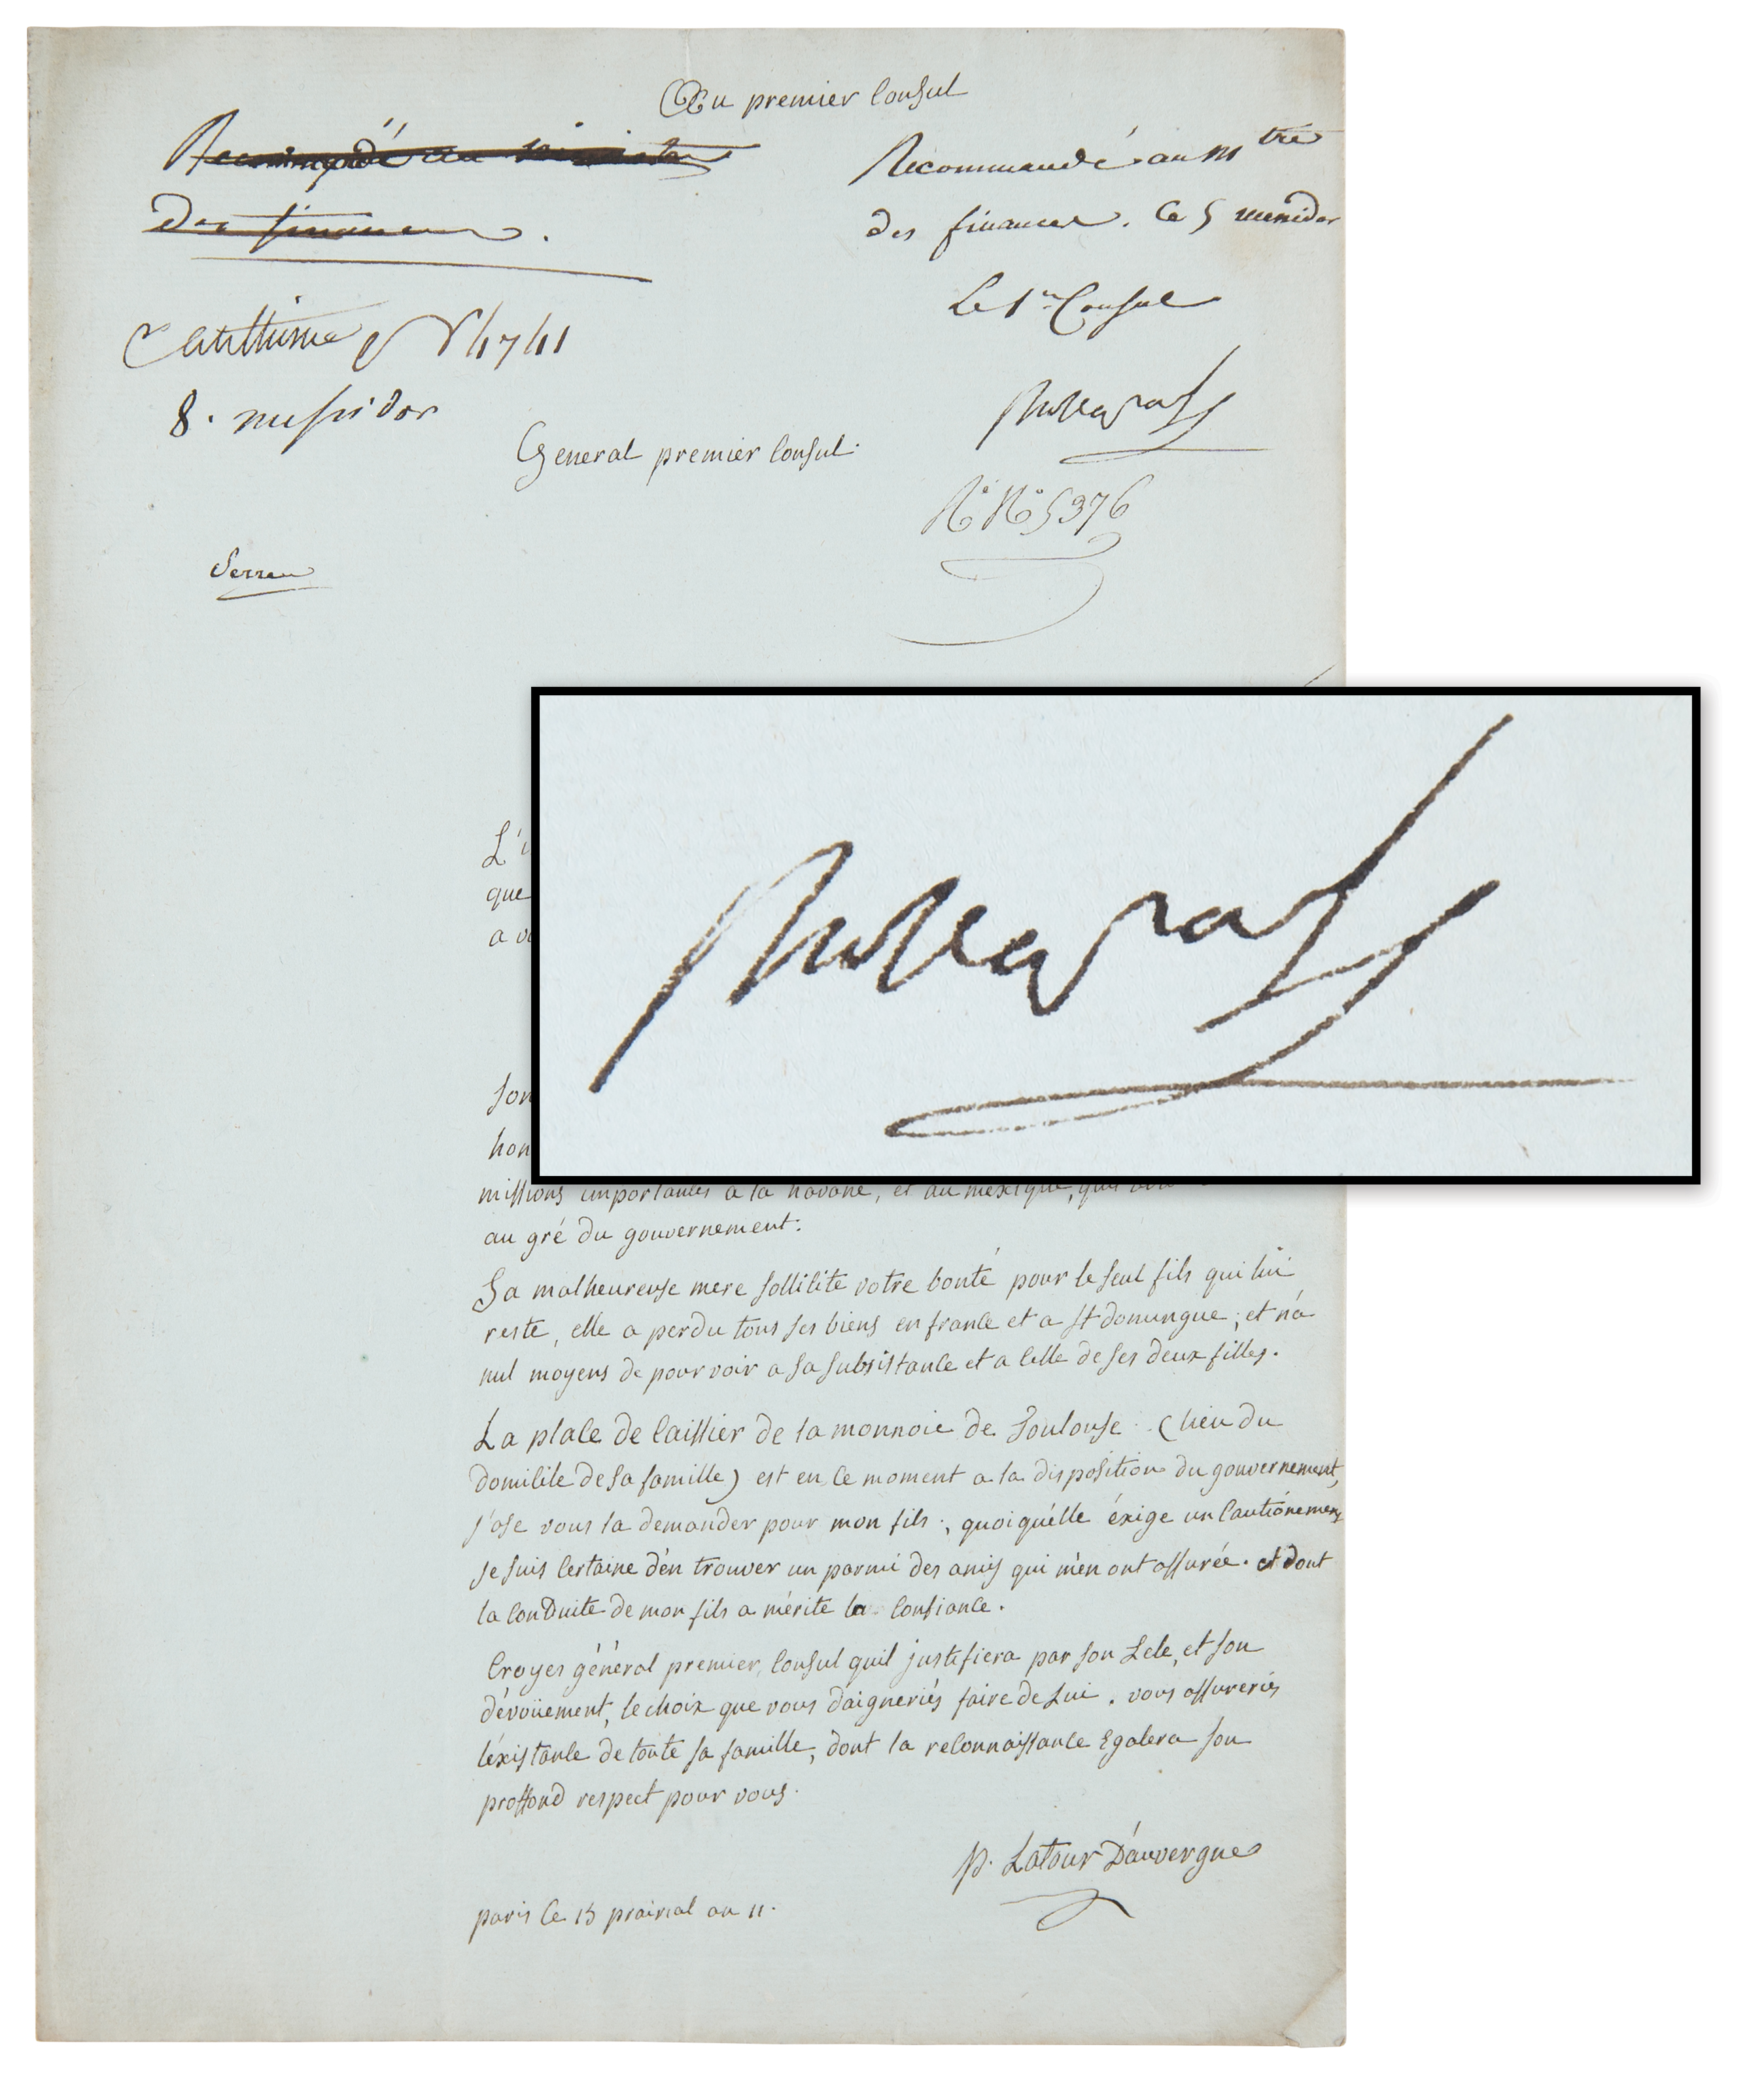 Au premier Consul
Recommandé au ministre
des finances.
Recommandé au Mtre
des finances. Ce 5 messidor
Le 1er Consul
8. messidor
General premier Consul.
No No 5376
L'i
que
a vo
son
hon
missions importantes a la havane, et au mexique,
au gré du gouvernement.
Sa malheureuse mere sollicite votre bonté pour le seul fils qui lui
reste, elle a perdu tous ses biens en france et a St domingue; et n'a
nul moyens de pourvoir a sa subsistance et a celle de ses deux filles.
La place de caissier de la monnoie de Toulouse (lieu du
domicile de sa famille) est en ce moment a la disposition du gouvernement,
j'ose vous la demander pour mon fils, quoiquélle éxige un cautionement
je suis certaine dén trouver un parmi des amis qui m'en ont assurée. et dont
la conduite de mon fils a mérité la confiance.
Croyes général premier consul quil justifiera par son Zele, et son
dévoüement, le choix que vous daigneriés faire de Lui. vous assureriés
léxistance de toute sa famille, dont la reconnaissance Egalera son
proffond respect pour vous.
p. Latour D'auvergne
paris ce 13 prairial an 11.